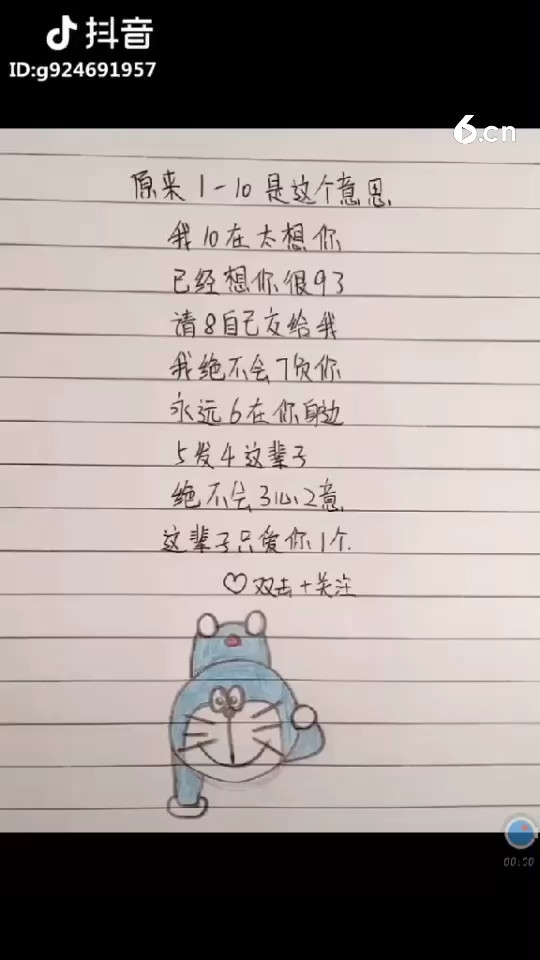 抖音
ID:g924691957
6.cn
原来1-10是这个意思
我10在太想你
已经想你很93
请8自己交给我
我绝不会7负你
永远6在你身边
5发4这辈子
绝不会3心2意
这辈子只爱你1个.
♡双击+关注
00:00